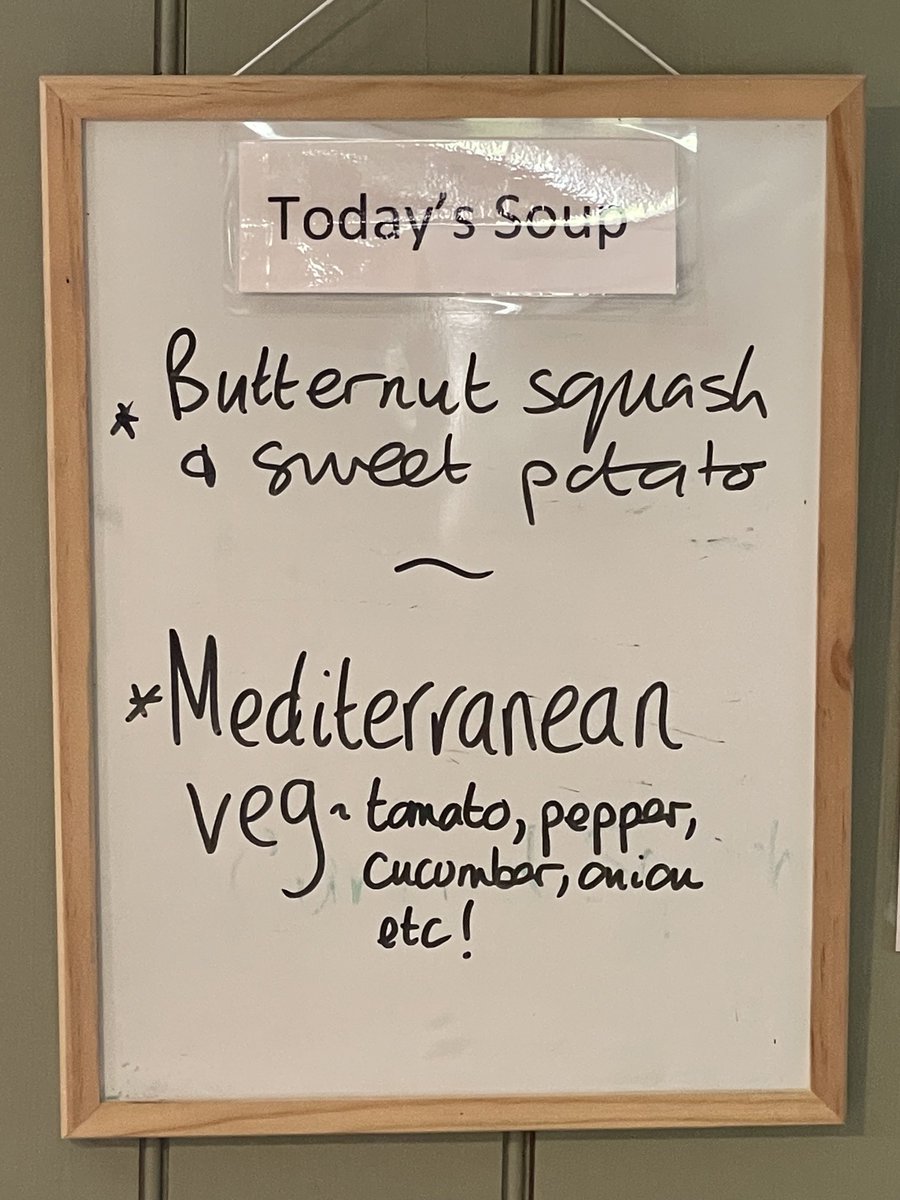 Today's Soup
* Butternut squash
& sweet potato
~
* Mediterranean
veg ~ tomato, pepper,
cucumber, onion
etc!